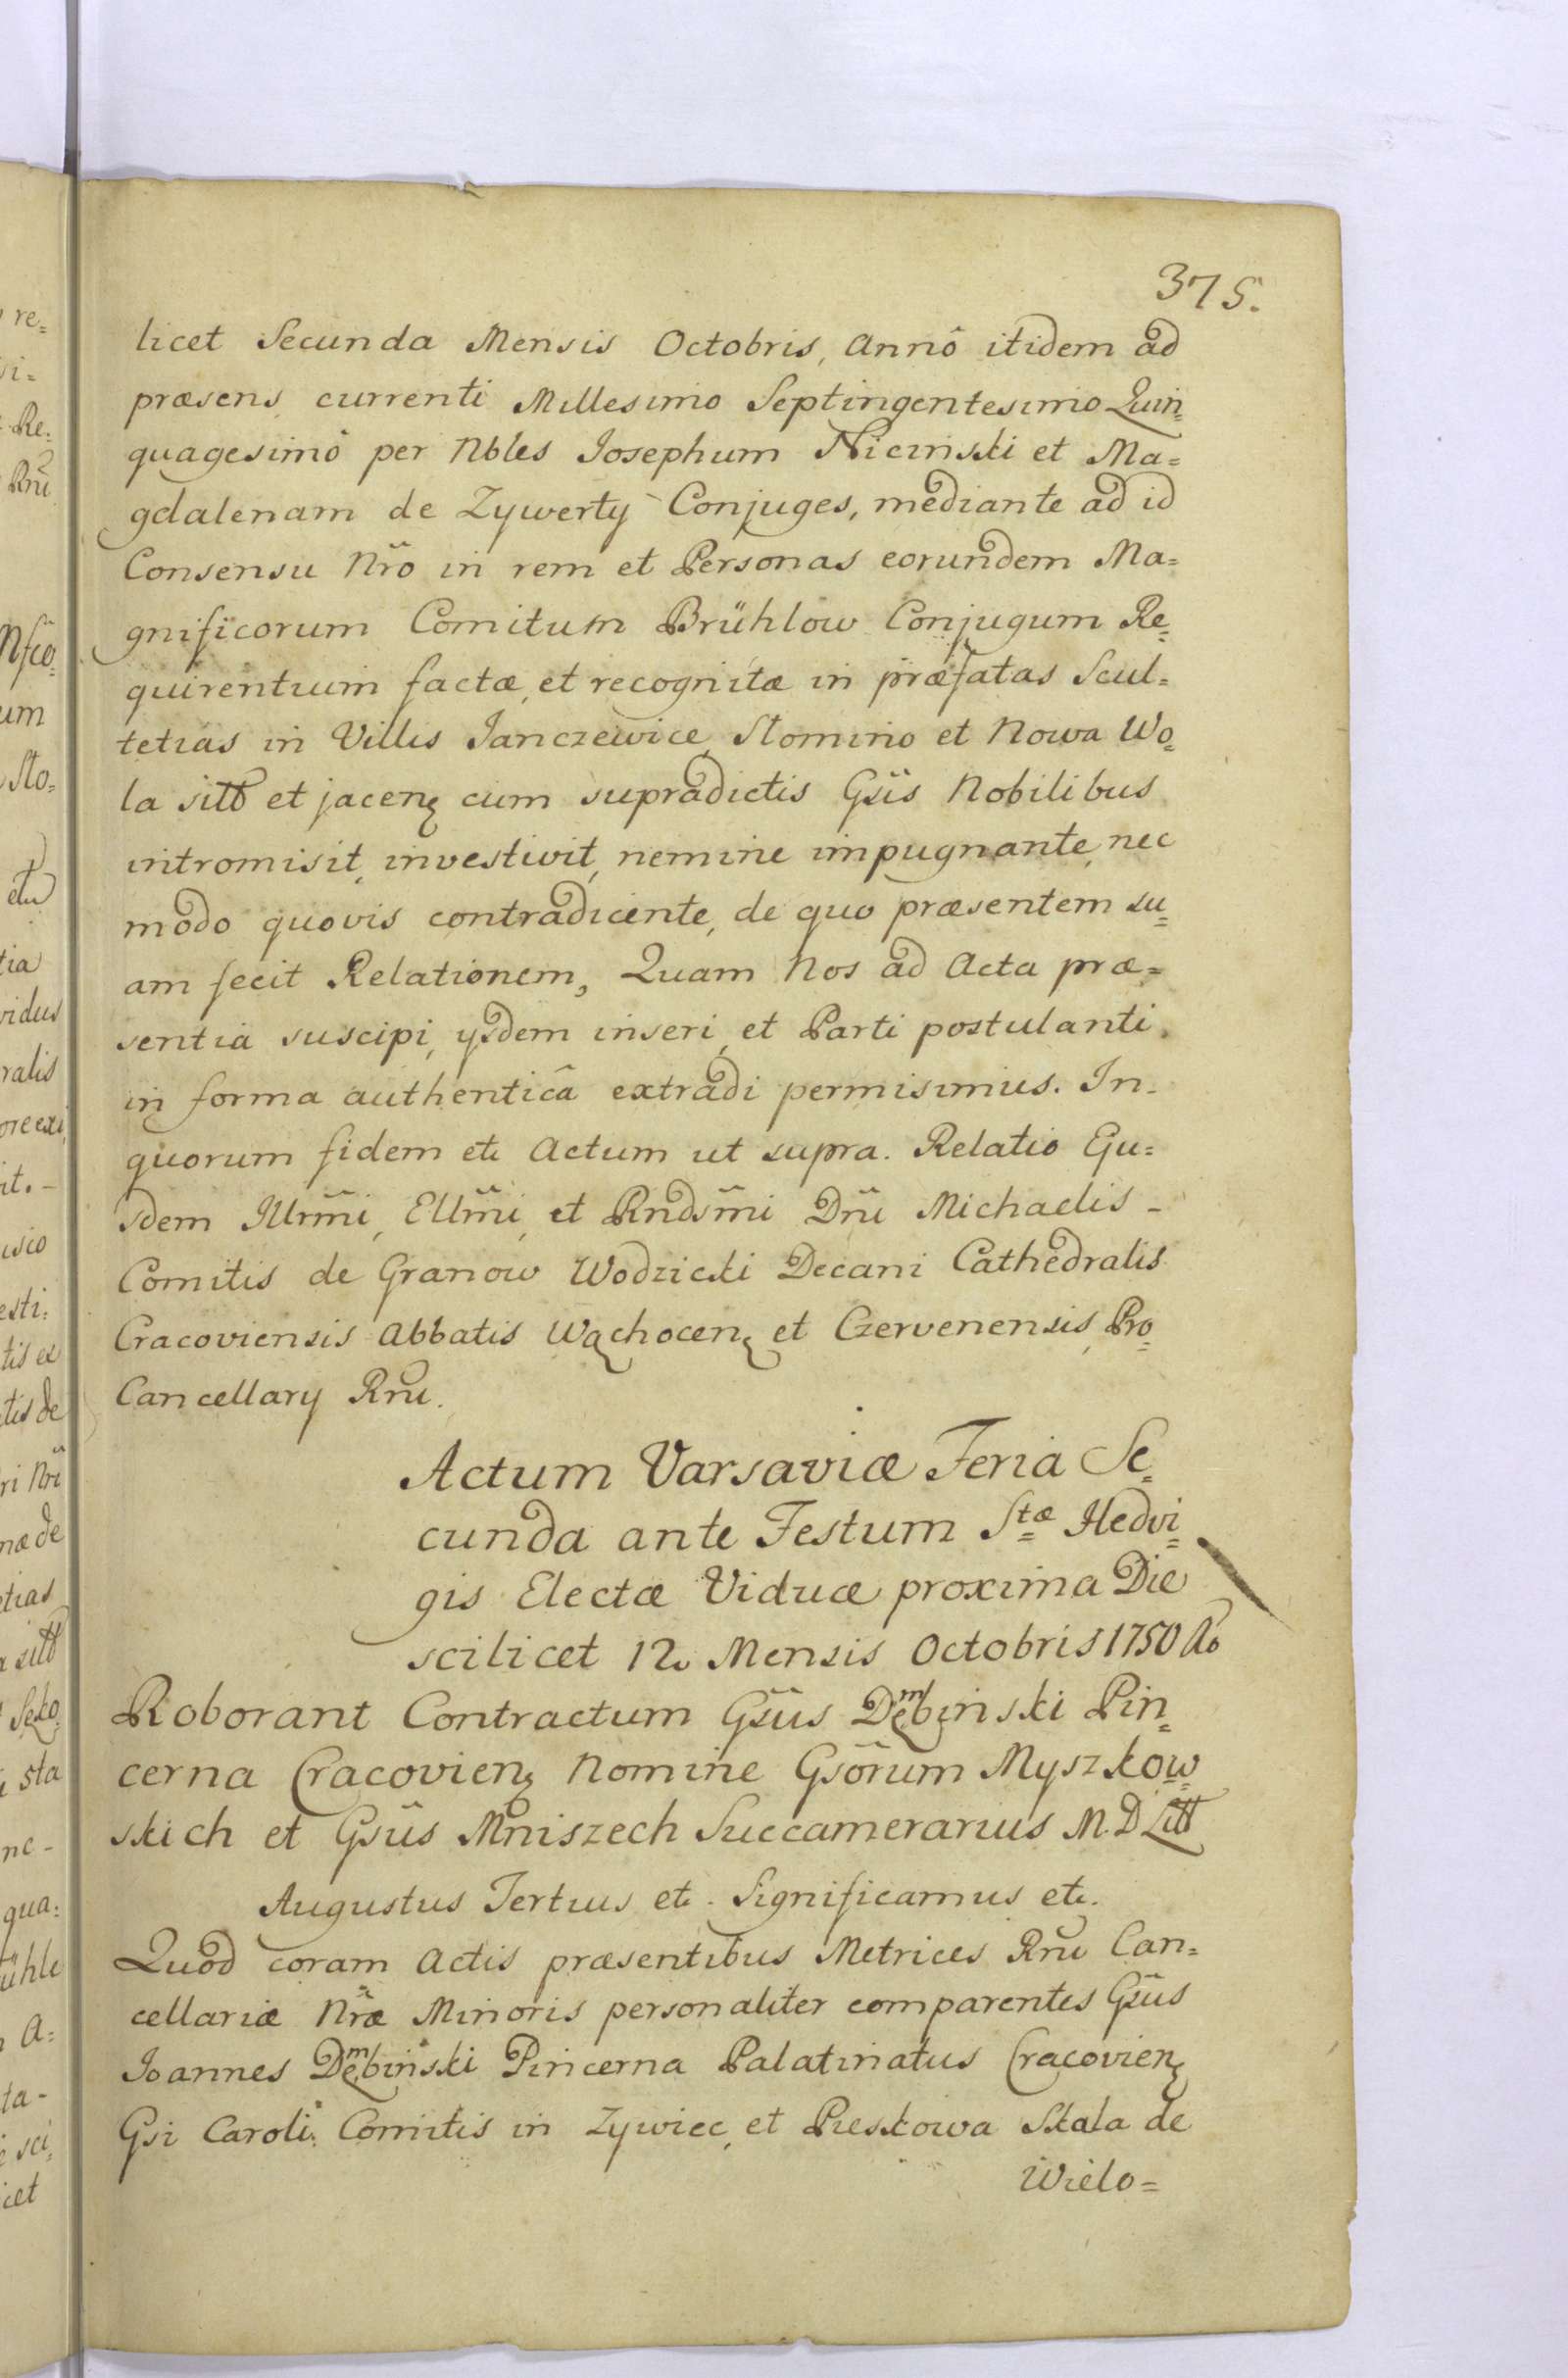 375.
licet Secunda Mensis Octobris, Annô itidem ad
præsens currenti Millesimo Septingentesimo Quin=
quagesimô per Nbles Iosephum Nicinski et Ma=
gdalenam de Zywerty Conjuges, mediante ad id
Consensu Nrõ in rem et Personas eorundem Ma=
gnificorum Comitum Brühlow Conjugum Re=
quirentium factæ, et recognitæ in præfatas Scul=
tetias in Villis Janczewice, Słomino et Nowa Wo=
la sitt et jacenę cum supradictis Gsis Nobilibus
intromisit, investivit, nemine impugnante, nec
modo quovis contradicente, de quo præsentem su=
am fecit Relationem, Quam Nos ad Acta præ=
sentia suscipi, ysdem inseri, et Parti postulanti
in forma authenticâ extradi permisimus. In-
quorum fidem etc Actum ut supra. Relatio Eju=
sdem Illrmi, Ellmi, et Rndsmi Dni Michaelis -
Comitis de Granow Wodzicki Decani Cathedralis
Cracoviensis Abbatis Wąchocenę et Czervenensis, Pro=
Cancellary Rni.
Actum Varsaviæ Feria Se=
cunda ante Festum Stæ Hedvi=
gis Electæ Viduæ proxima Die
scilicet 12. Mensis Octobris 1750 Ao
Roborant Contractum Gsus Dembinski Pin=
cerna Cracovienę Nomine Gsorum Myszkow=
skich et Gsus Mniszech Succamerarius M. D Litt
Augustus Tertius etc. Significamus etc.
Quod coram Actis præsentibus Metrices Rni Can=
cellariæ Nræ Minoris personaliter comparentes Gsus
Joannes Dembinski Pincerna Palatinatus Cracovienę
Gsi Caroli Comitis in Zywiec, et Pieskowa Skała de
Wielo=